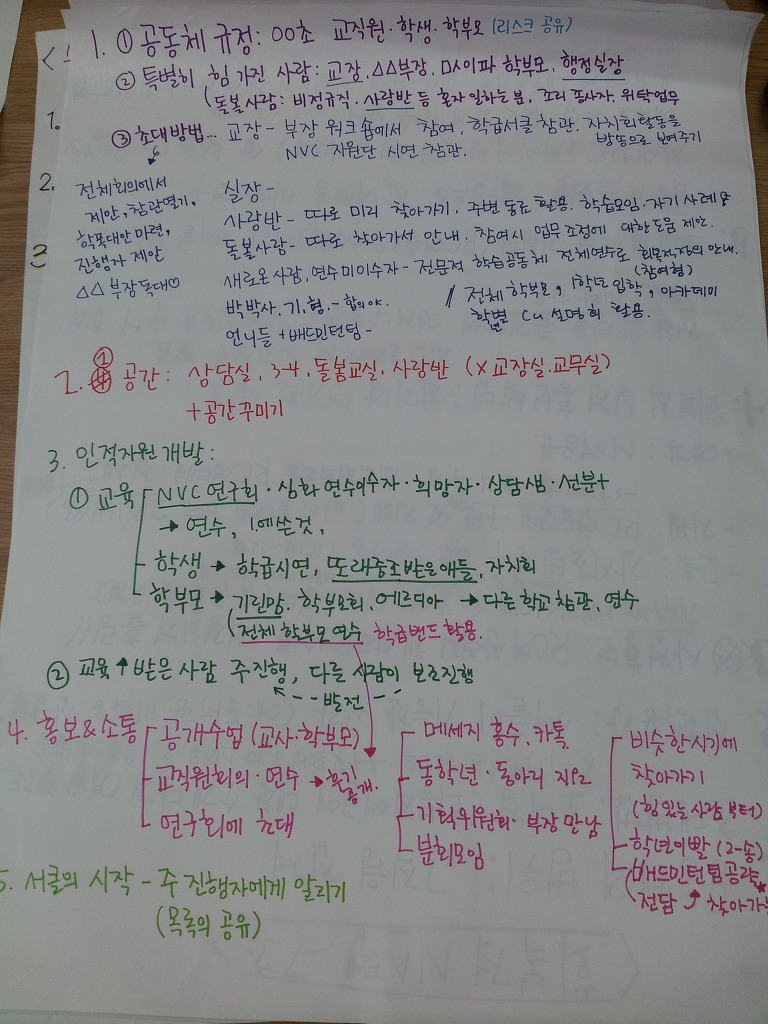 1. ① 공동체 규정: 00초 교직원·학생·학부모 (리스크 공유)
② 특별히 힘 가진 사람: 교장, △△부장, □시이파 학부모, 행정실장
(돌봄사람: 비정규직, 사랑반 등 혼자 일하는 분, 조리 종사자, 위탁업무
1.
③ 초대방법... 교장 - 부장 워크숍에서 참여, 학급서클 참관, 자치회활동을
발동으로 보여주기
NVC 지원단 시연 참관.
2.
전체회의에서
제안, 참관열기,
학폭대안 마련,
진행자 제안
△△ 부장독대♡
3
실장 -
사랑반 - 따로 미리 찾아가기, 주변 동료 활용, 학습모임·자기 사례
돌봄사람 - 따로 찾아가서 안내, 참여시 업무 조정에 대한 도움 제안.
새로온 사람, 연수미이수자 - 전문적 학습공동체 전체연수로 회복적정의 안내.
(참여형)
박박사, 기, 형. - 합의야.
언니들 + 배드민턴팀 -
// 전체 학부모, 1학년 입학, 아카데미
학년별 Cu 설명회 활용.
2. ① 공간: 상담실, 3-4, 돌봄교실, 사랑반 (X 교장실, 교무실)
+ 공간꾸미기
3. 인적자원 개발:
① 교육 NVC 연구회·심화 연수이수자·희망자·상담샘·선분+
→ 연수, 1에 쓴 것,
학생 → 학급시연, 또래중조받은 애들, 자치회
학부모 → 기린맘, 학부모회, 에르디아 → 다른 학교 참관, 연수
(전체 학부모 연수 학급밴드 활용.
② 교육↑ 받은 사람 주진행, 다른 사람이 보조진행
발전
4. 홍보&소통
공개수업 (교사·학부모)
교직원회의·연수 → 후기 공개.
연구회에 초대
메세지 홍수, 카톡
동학년·동아리 지원
기획위원회·부장 만남
분회모임
비슷한시기에
찾아가기
(힘 있는 사람부터)
학년이빨 (2-송)
배드민턴팀공략★
(전담 찾아가
5. 서클의 시작 - 주 진행자에게 알리기
(목록의 공유)